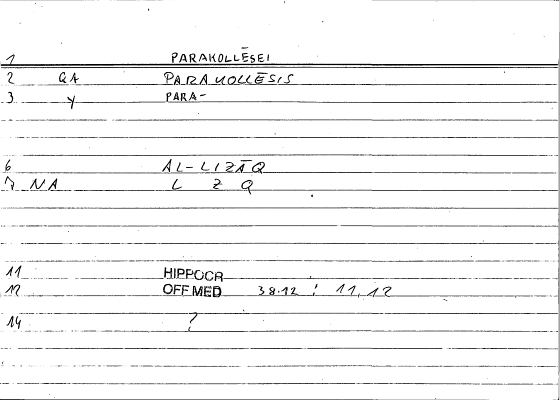 1 PARAKOLLĒSEI
2 GA PARAKOLLĒSIS
3 Y PARA-
6 AL-LIZĀQ
7 NA L Z Q
11 HIPPOCR
12 OFF MED 38.12 : 11,12
14 ?